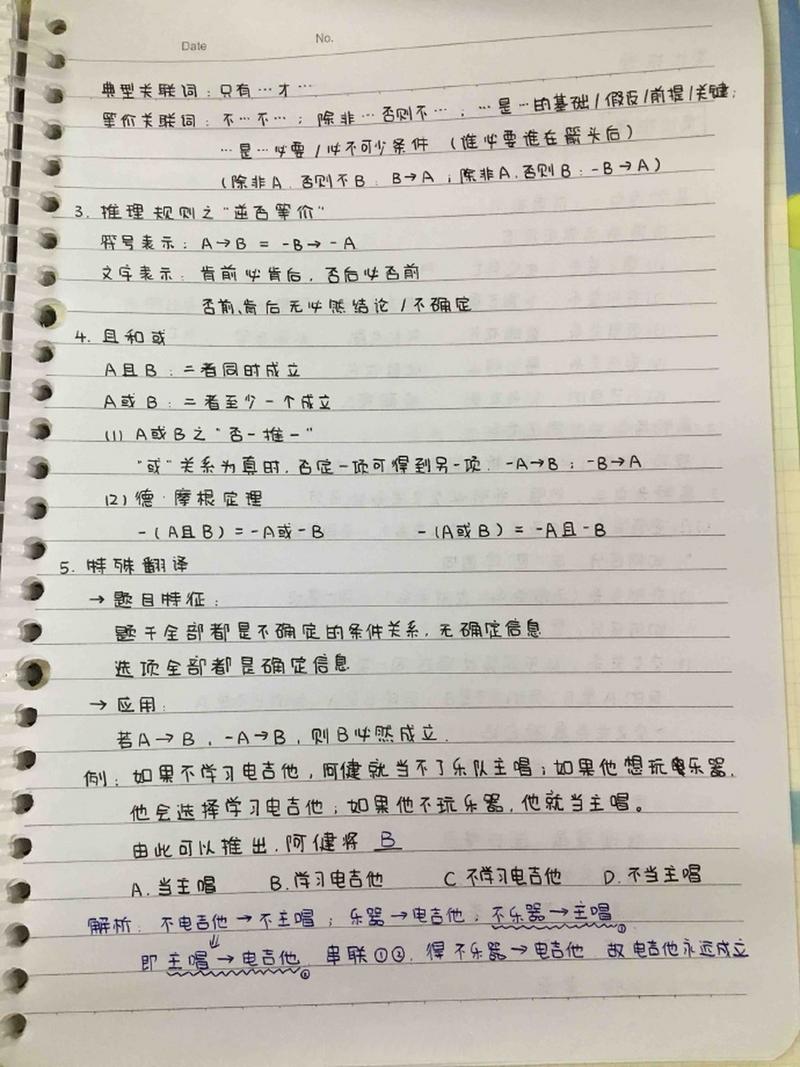 Date
No.
典型关联词：只有…才…
等价关联词：不…不…；除非…否则不…；…是…的基础/假设/前提/关键；
…是…必要/必不可少条件（谁必要谁在箭头后）
（除非A，否则不B：B→A；除非A，否则B：-B→A）
3. 推理规则之"逆否等价"
符号表示：A→B = -B→-A
文字表示：肯前必肯后，否后必否前
否前、肯后无必然结论/不确定
4. 且和或
A且B：二者同时成立
A或B：二者至少一个成立
(1) A或B之"否一推一"
"或"关系为真时，否定一项可得到另一项．-A→B；-B→A
(2) 德·摩根定理
-(A且B)=-A或-B -(A或B)=-A且-B
5. 特殊翻译
→ 题目特征：
题干全部都是不确定的条件关系，无确定信息
选项全部都是确定信息
→ 应用：
若A→B，-A→B，则B必然成立．
例：如果不学习电吉他，阿健就当不了乐队主唱；如果他想玩电乐器，
他会选择学习电吉他；如果他不玩乐器，他就当主唱。
由此可以推出，阿健将 B
A. 当主唱 B. 学习电吉他 C 不学习电吉他 D. 不当主唱
解析：不电吉他→不主唱；乐器→电吉他；不乐器→主唱①
即 主唱→电吉他②，串联①②，得 不乐器→电吉他 故 电吉他永远成立